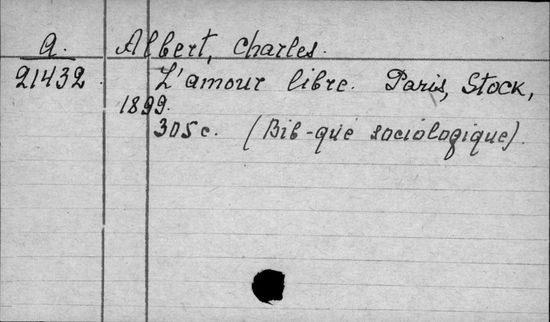 A. Albert, Charles.
21432 L'amour libre. Paris, Stock,
1899.
305 c. (Bib-que sociologique).